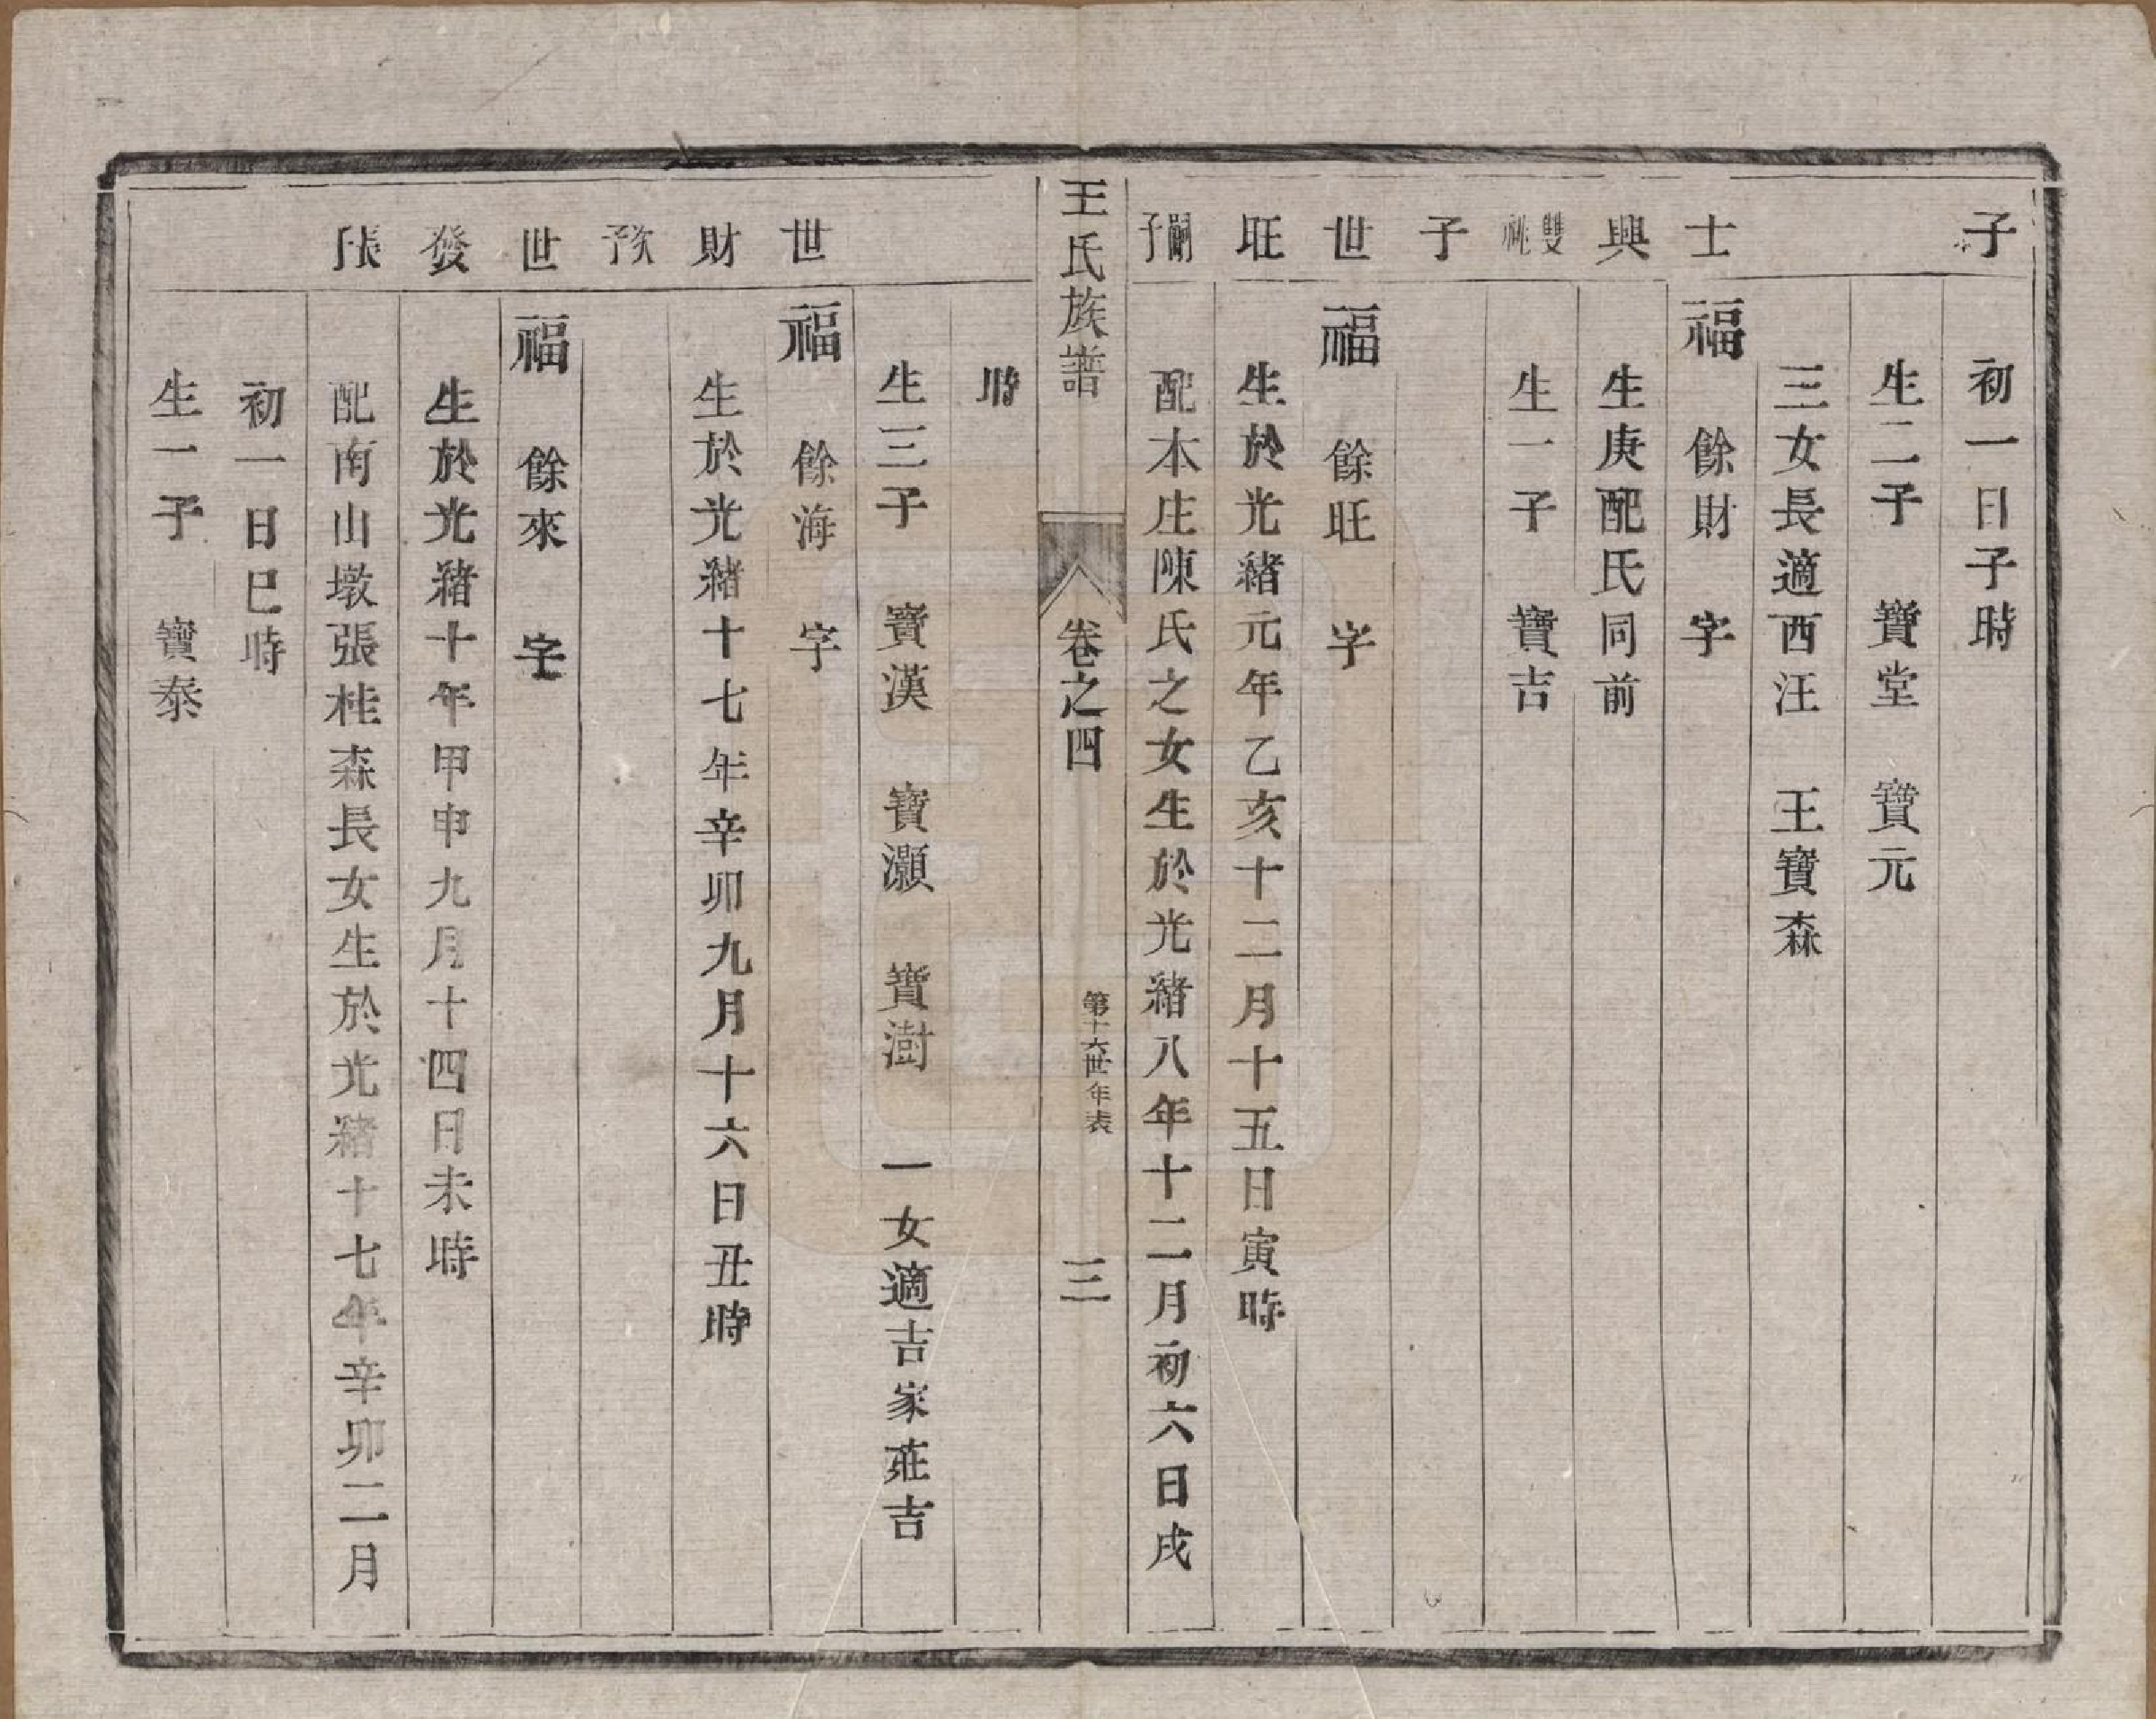 子
初一日子時
生二子 寶堂 寶元
三女長適西汪 王寶森
士興雙祧子
福餘財 字
生庚配氏同前
生一子 寶吉
世旺嗣子
福餘旺 字
生於光緒元年乙亥十二月十五日寅時
配本庄陳氏之女生於光緒八年十二月初六日戌
王氏族譜 卷之四 第十六世年表 三
時
生三子 寶漢 寶灝 寶澍 一女適吉家莊吉
世財次子
福餘海 字
生於光緒十七年辛卯九月十六日丑時
世發長子
福餘來 字
生於光緒十年甲申九月十四日未時
配南山墩張桂森長女生於光緒十七年辛卯二月
初一日巳時
生一子 寶泰